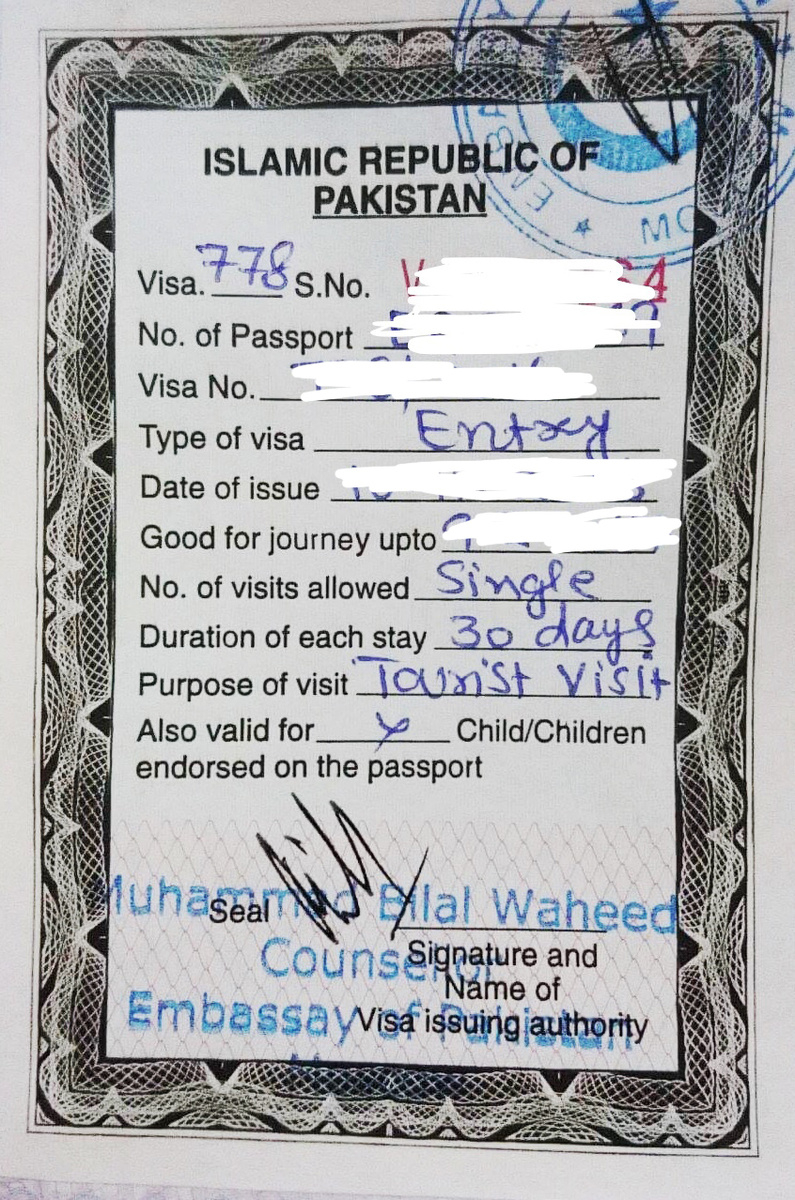 ISLAMIC REPUBLIC OF
PAKISTAN
Visa. 778 S.No.
No. of Passport
Visa No.
Type of visa Entry
Date of issue
Good for journey upto
No. of visits allowed Single
Duration of each stay 30 days
Purpose of visit Tourist Visit
Also valid for x Child/Children
endorsed on the passport
Muhammad Bilal Waheed
Seal
Counselor
Signature and
Name of
Embassay of Pakistan
Visa issuing authority